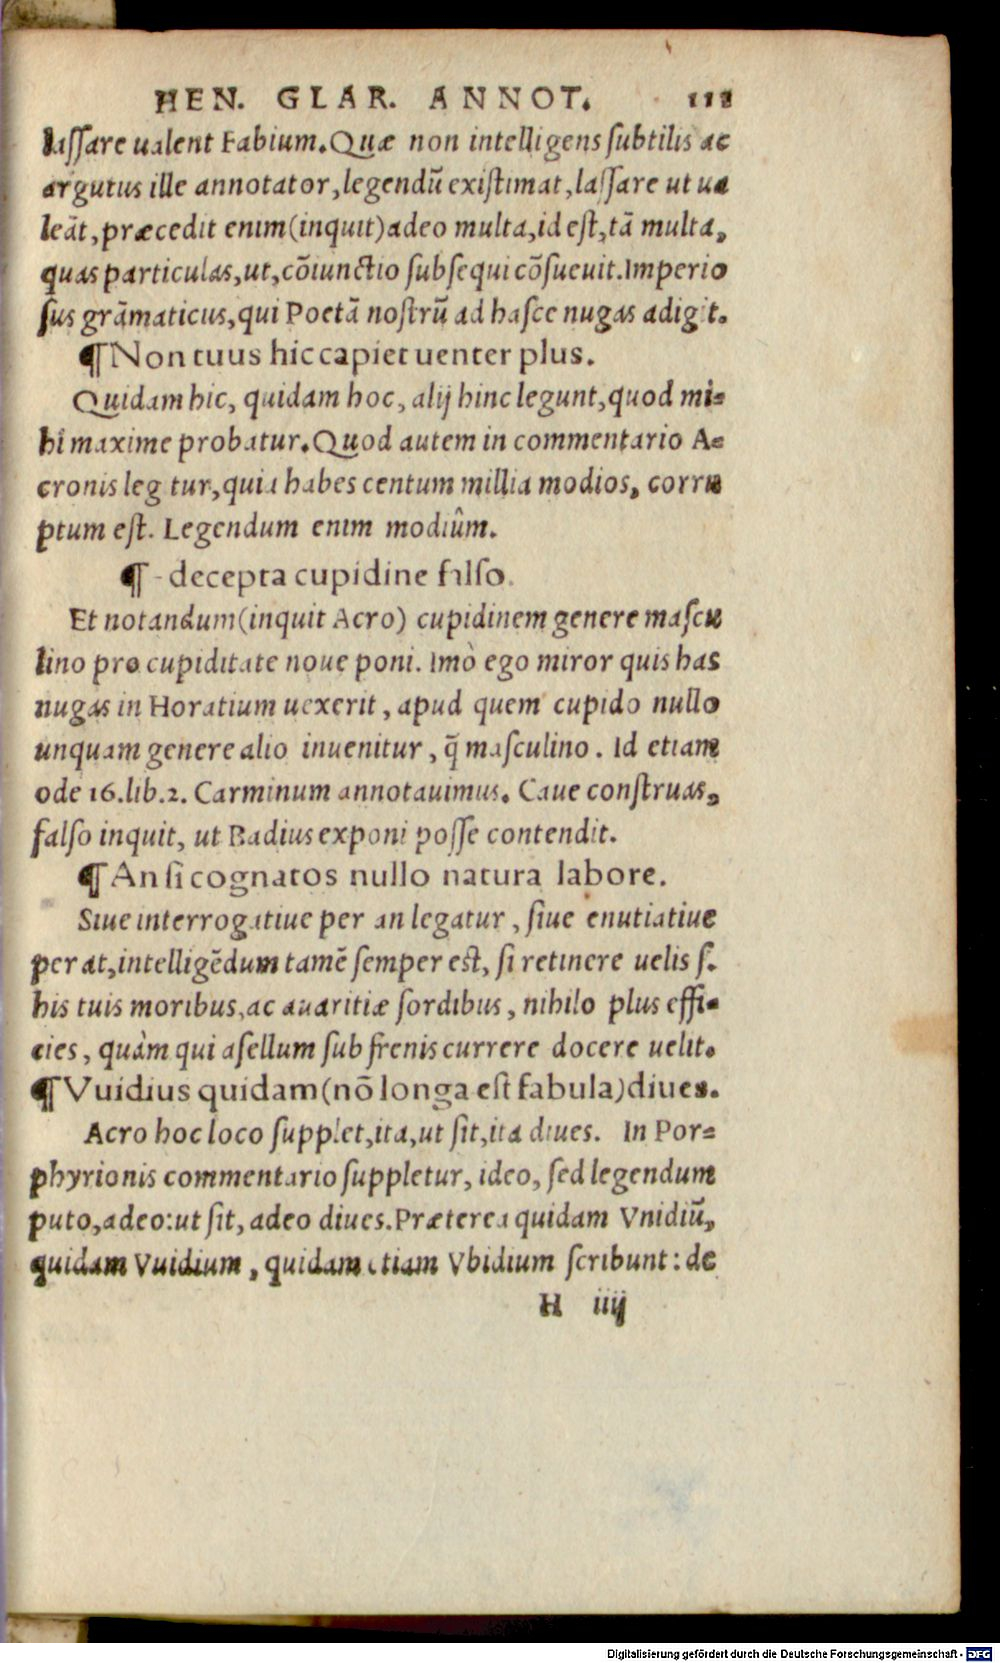 HEN. GLAR. ANNOT. 112
laſſare ualent Fabium. Quæ non intelligens ſubtilis ac
argutus ille annotator, legendū exiſtimat, laſſare ut ua
leāt, præcedit enim (inquit) adeo multa, id eſt, tā multa,
quas particulas, ut, cōiunctio ſubſequi cōſueuit. Imperio
ſus grāmaticus, qui Poetā noſtrū ad haſce nugas adigit.
¶ Non tuus hic capiet uenter plus.
Quidam hic, quidam hoc, alij hinc legunt, quod mi⸗
hi maxime probatur. Quod autem in commentario A⸗
cronis leg tur, quia habes centum millia modios, corru
ptum eſt. Legendum enim modiûm.
¶ - decepta cupidine falſo.
Et notandum (inquit Acro) cupidinem genere maſcu
lino pro cupiditate noue poni. Imò ego miror quis has
nugas in Horatium uexerit, apud quem cupido nullo
unquam genere alio inuenitur, q̄ maſculino. Id etiam
ode 16. lib. 2. Carminum annotauimus. Caue conſtruas,
falſo inquit, ut Badius exponi poſſe contendit.
¶ An ſi cognatos nullo natura labore.
Siue interrogatiue per an legatur, ſiue enutiatiue
per at, intelligēdum tamē ſemper eſt, ſi retinere uelis ſ.
his tuis moribus, ac auaritiæ ſordibus, nihilo plus effi⸗
cies, quàm qui aſellum ſub frenis currere docere uelit.
¶ Vuidius quidam (nō longa eſt fabula) diues.
Acro hoc loco ſupplet, ita, ut ſit, ita diues. In Por⸗
phyrionis commentario ſuppletur, ideo, ſed legendum
puto, adeo: ut ſit, adeo diues. Præterea quidam Vnidiū,
quidam Vuidium, quidam etiam Vbidium ſcribunt: de
H iiij
Digitalisierung gefördert durch die Deutsche Forschungsgemeinschaft - DFG